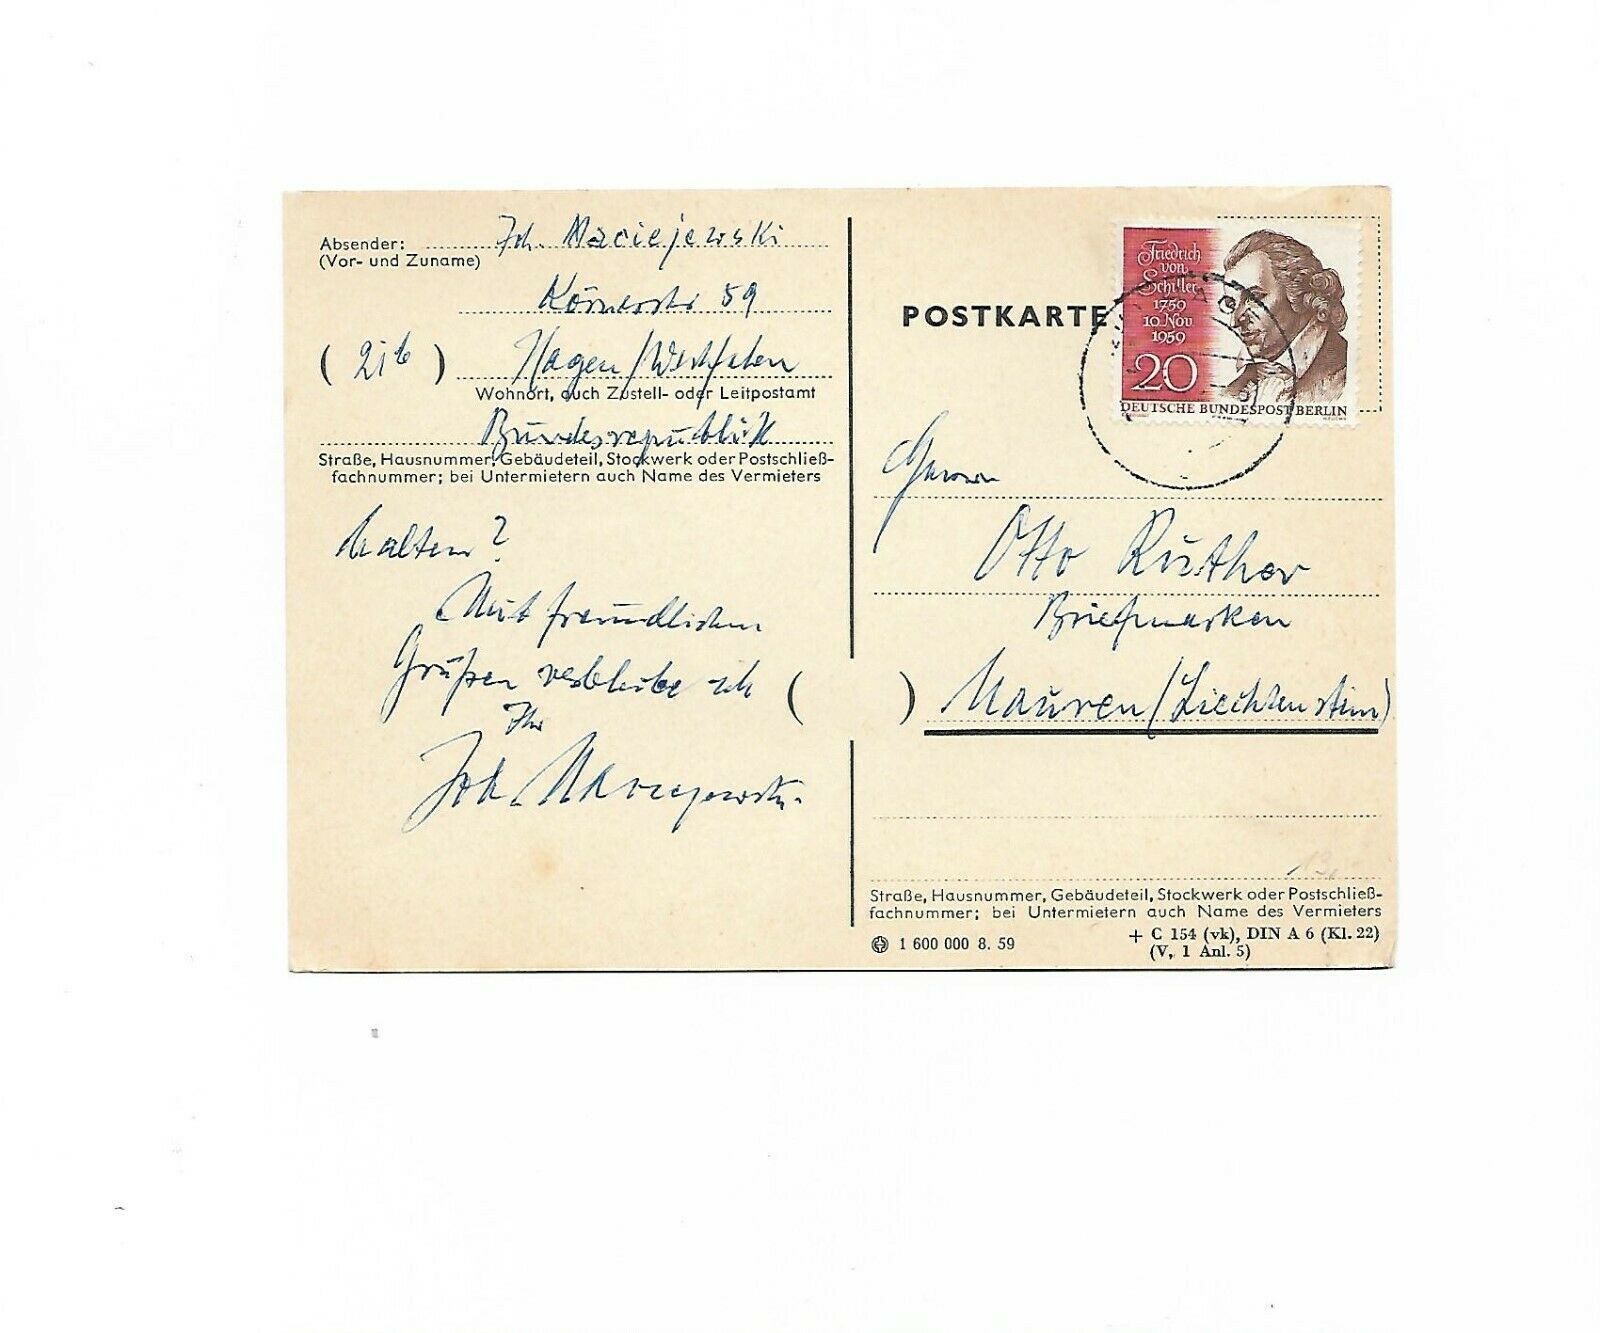 Absender: Joh. Maciejewski
(Vor- und Zuname)
Körnerstr 59
(21b) Hagen/Westfalen
Wohnort, auch Zustell- oder Leitpostamt
Bundesrepublik
Straße, Hausnummer, Gebäudeteil, Stockwerk oder Postschließ-
fachnummer; bei Untermietern auch Name des Vermieters
halten?
Mit freundlichen
Grüßen verbleibe ich
Ihr
Joh. Maciejewski
POSTKARTE
Friedrich
von
Schiller
1759
10. Nov
1959
20
DEUTSCHE BUNDESPOST BERLIN
Herrn
Otto Ruther
Briefmarken
( ) Mauren/(Liechtenstein)
Straße, Hausnummer, Gebäudeteil, Stockwerk oder Postschließ-
fachnummer; bei Untermietern auch Name des Vermieters
1 600 000 8. 59
+ C 154 (vk), DIN A 6 (Kl. 22)
(V, 1 Anl. 5)